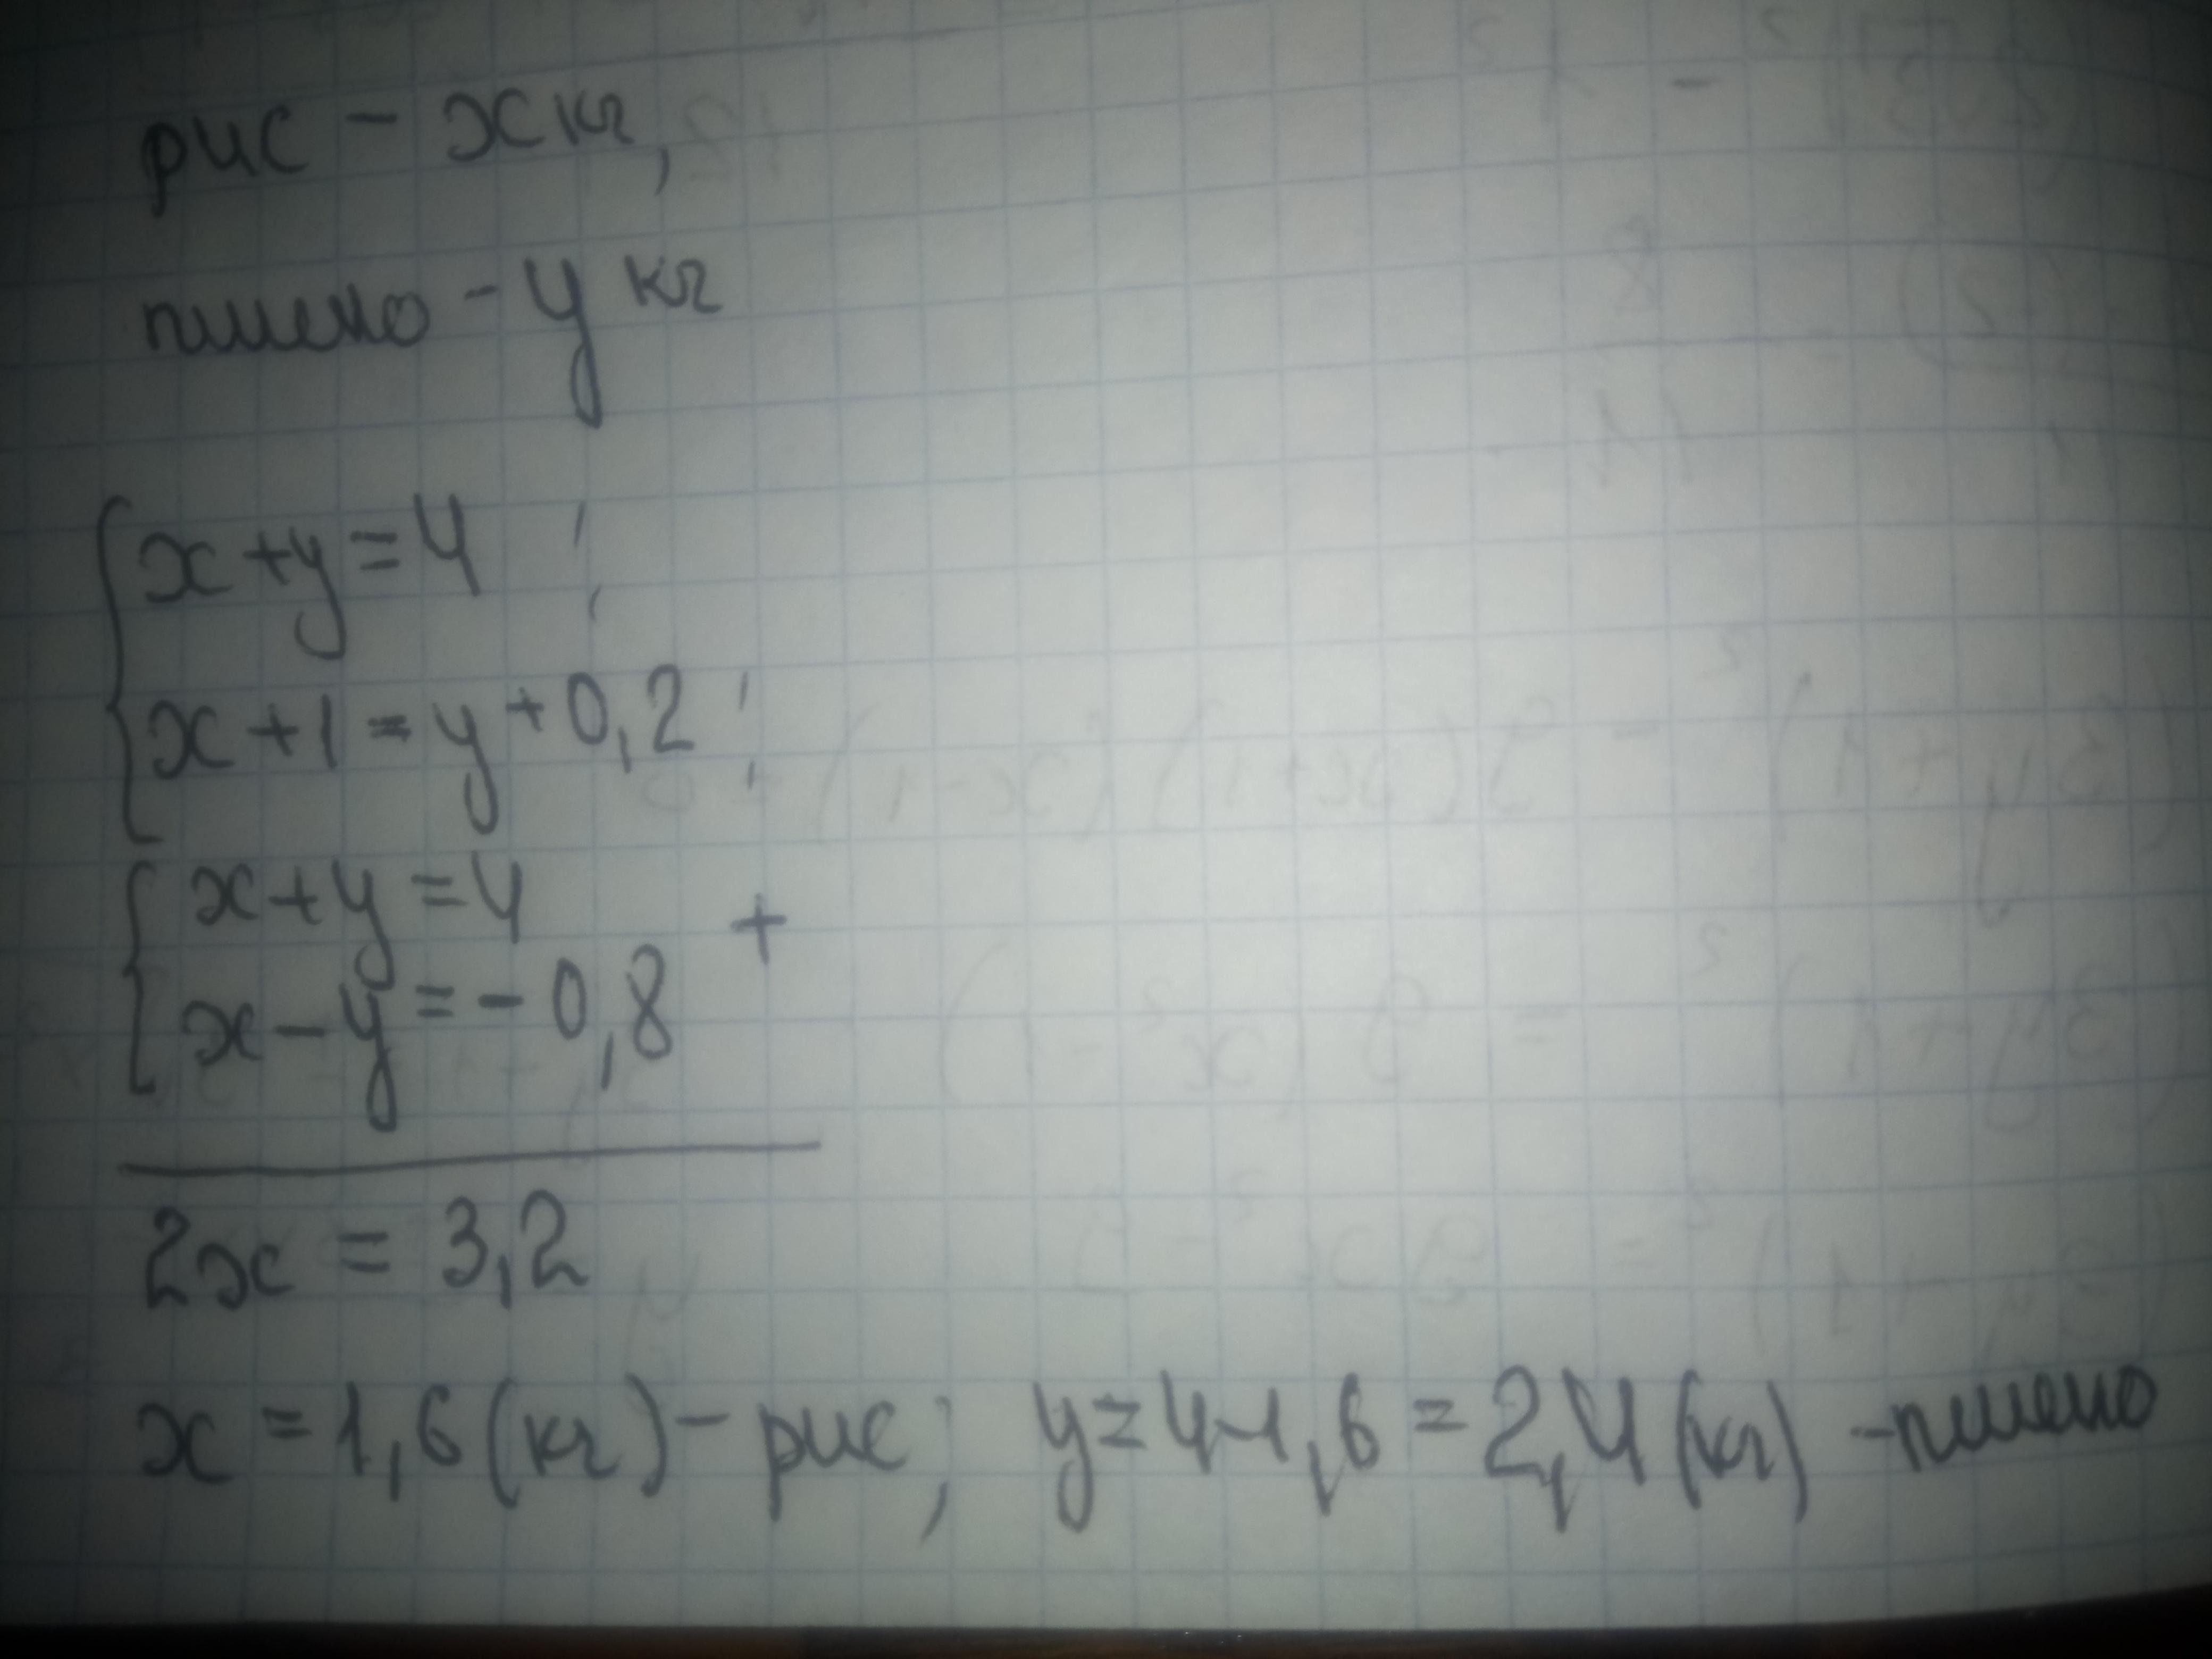 рис - x кг,
пшено - y кг
x + y = 4
x + 1 = y + 0,2
x + y = 4
+
x - y = - 0,8
2x = 3,2
x = 1,6 (кг) - рис; y = 4-1,6 = 2,4 (кг) - пшено